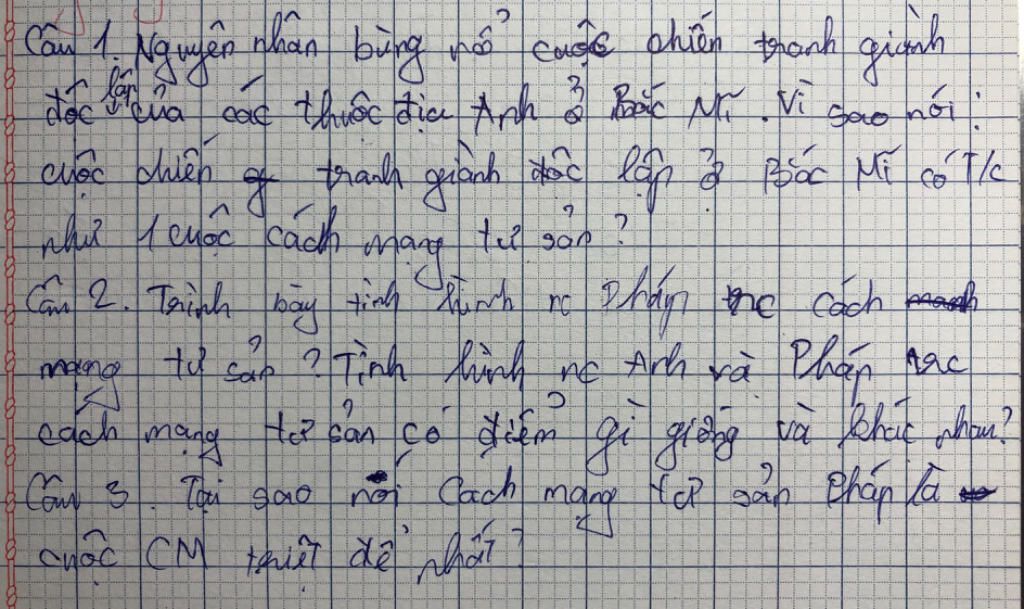 Câu 1. Nguyên nhân bùng nổ cuộc chiến tranh giành
độc lập của các thuộc địa Anh ở Bắc Mĩ. Vì sao nói:
cuộc chiến tranh giành độc lập ở Bắc Mĩ có T/c
như 1 cuộc cách mạng tư sản?
Câu 2. Trình bày tình hình nc Pháp trc cách
mạng tư sản? Tình hình nc Anh và Pháp trc
cách mạng tư sản có điểm gì giống và khác nhau?
Câu 3. Tại sao nói Cách mạng tư sản Pháp là
cuộc CM triệt để nhất?